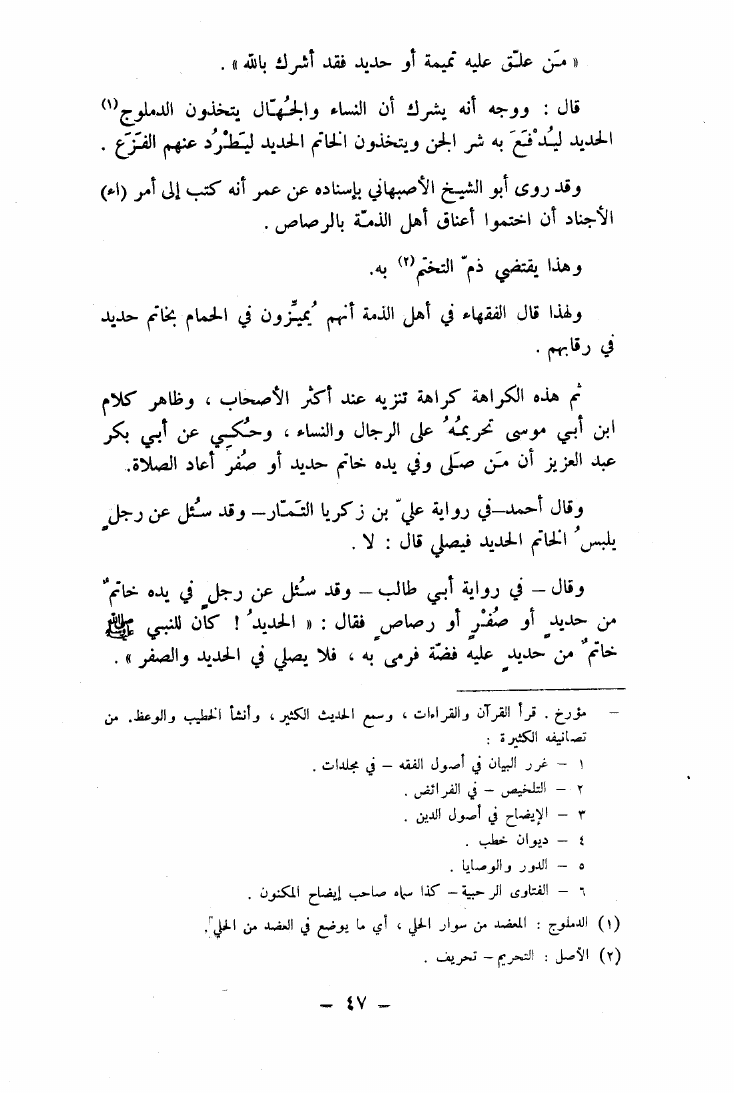 « مَن علّق عليه تميمة أو حديد فقد أشرك بالله » .
قال : ووجه أنه يشرك أن النساء والجُهّال يتخذون الدملوج(١)
الحديد ليُدْفَعَ به شر الجن ويتخذون الخاتم الحديد ليَطْرُد عنهم الفَزَع .
وقد روى أبو الشيخ الأصبهاني بإسناده عن عمر أنه كتب إلى أمر (اء)
الأجناد أن اختموا أعناق أهل الذمّة بالرصاص .
وهذا يقتضي ذمّ التختّم(٢) به.
ولهذا قال الفقهاء في أهل الذمة أنهم يُميَّزون في الحمام بخاتم حديد
في رقابهم .
ثم هذه الكراهة كراهة تنزيه عند أكثر الأصحاب ، وظاهر كلام
ابن أبي موسى تحريمُهُ على الرجال والنساء ، وحُكِي عن أبي بكر
عبد العزيز أن مَن صَلّى وفي يده خاتم حديد أو صُفر أعاد الصلاة.
وقال أحمد–في رواية عليّ بن زكريا التَمّار– وقد سُئل عن رجلٍ
يلبسُ الخاتم الحديد فيصلي قال : لا .
وقال – في رواية أبي طالب – وقد سُئل عن رجلٍ في يده خاتمٌ
من حديدٍ أو صُفْرٍ أو رصاصٍ فقال : « الحديدُ ! كان للنبي ﷺ
خاتمٌ من حديدٍ عليه فضّة فرمى به ، فلا يصلي في الحديد والصفر » .
– مؤرخ . قرأ القرآن والقراءات ، وسمع الحديث الكثير ، وأنشأ الخطيب والوعظ. من
تصانيفه الكثيرة :
١ – غرر البيان في أصول الفقه – في مجلدات .
٢ – التلخيص – في الفرائض .
٣ – الإيضاح في أصول الدين .
٤ – ديوان خطب .
٥ – الدور والوصايا .
٦ – الفتاوى الرحبية – كذا سماه صاحب إيضاح المكنون .
(١) الدملوج : المعضد من سوار الحلي ، أي ما يوضع في العضد من الحلي.
(٢) الأصل : التحريم – تحريف .
– ٤٧ –